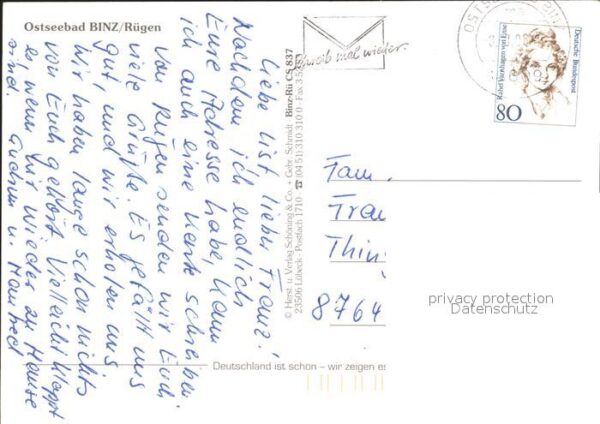 Ostseebad BINZ/Rügen
Liebe Lisl, lieber Franz!
Nachdem ich endlich
Eure Adresse habe, kann
ich auch eine Karte schreiben
Von Rügen senden wir Euch
viele Grüße. Es gefällt uns
gut, und wir erholen uns
Wir haben lange schon nichts
von Euch gehört. Vielleicht klappt
es wenn wir wieder zu Hause
sind. Gudrun u. Manfred
© Herst. u. Verlag Schöning & Co. + Gebr. Schmidt Binz-Rü CS 837
23506 Lübeck - Postfach 1710 - ☎ (04 51) 310 310 0 - Fax 3 5
Schreib mal wieder.
OSTSEEBAD BINZ
Rahel Varnhagen von Ense
Deutsche Bundespost
80
Fam.
Fran
Thin
8764
privacy protection
Datenschutz
Deutschland ist schön – wir zeigen es